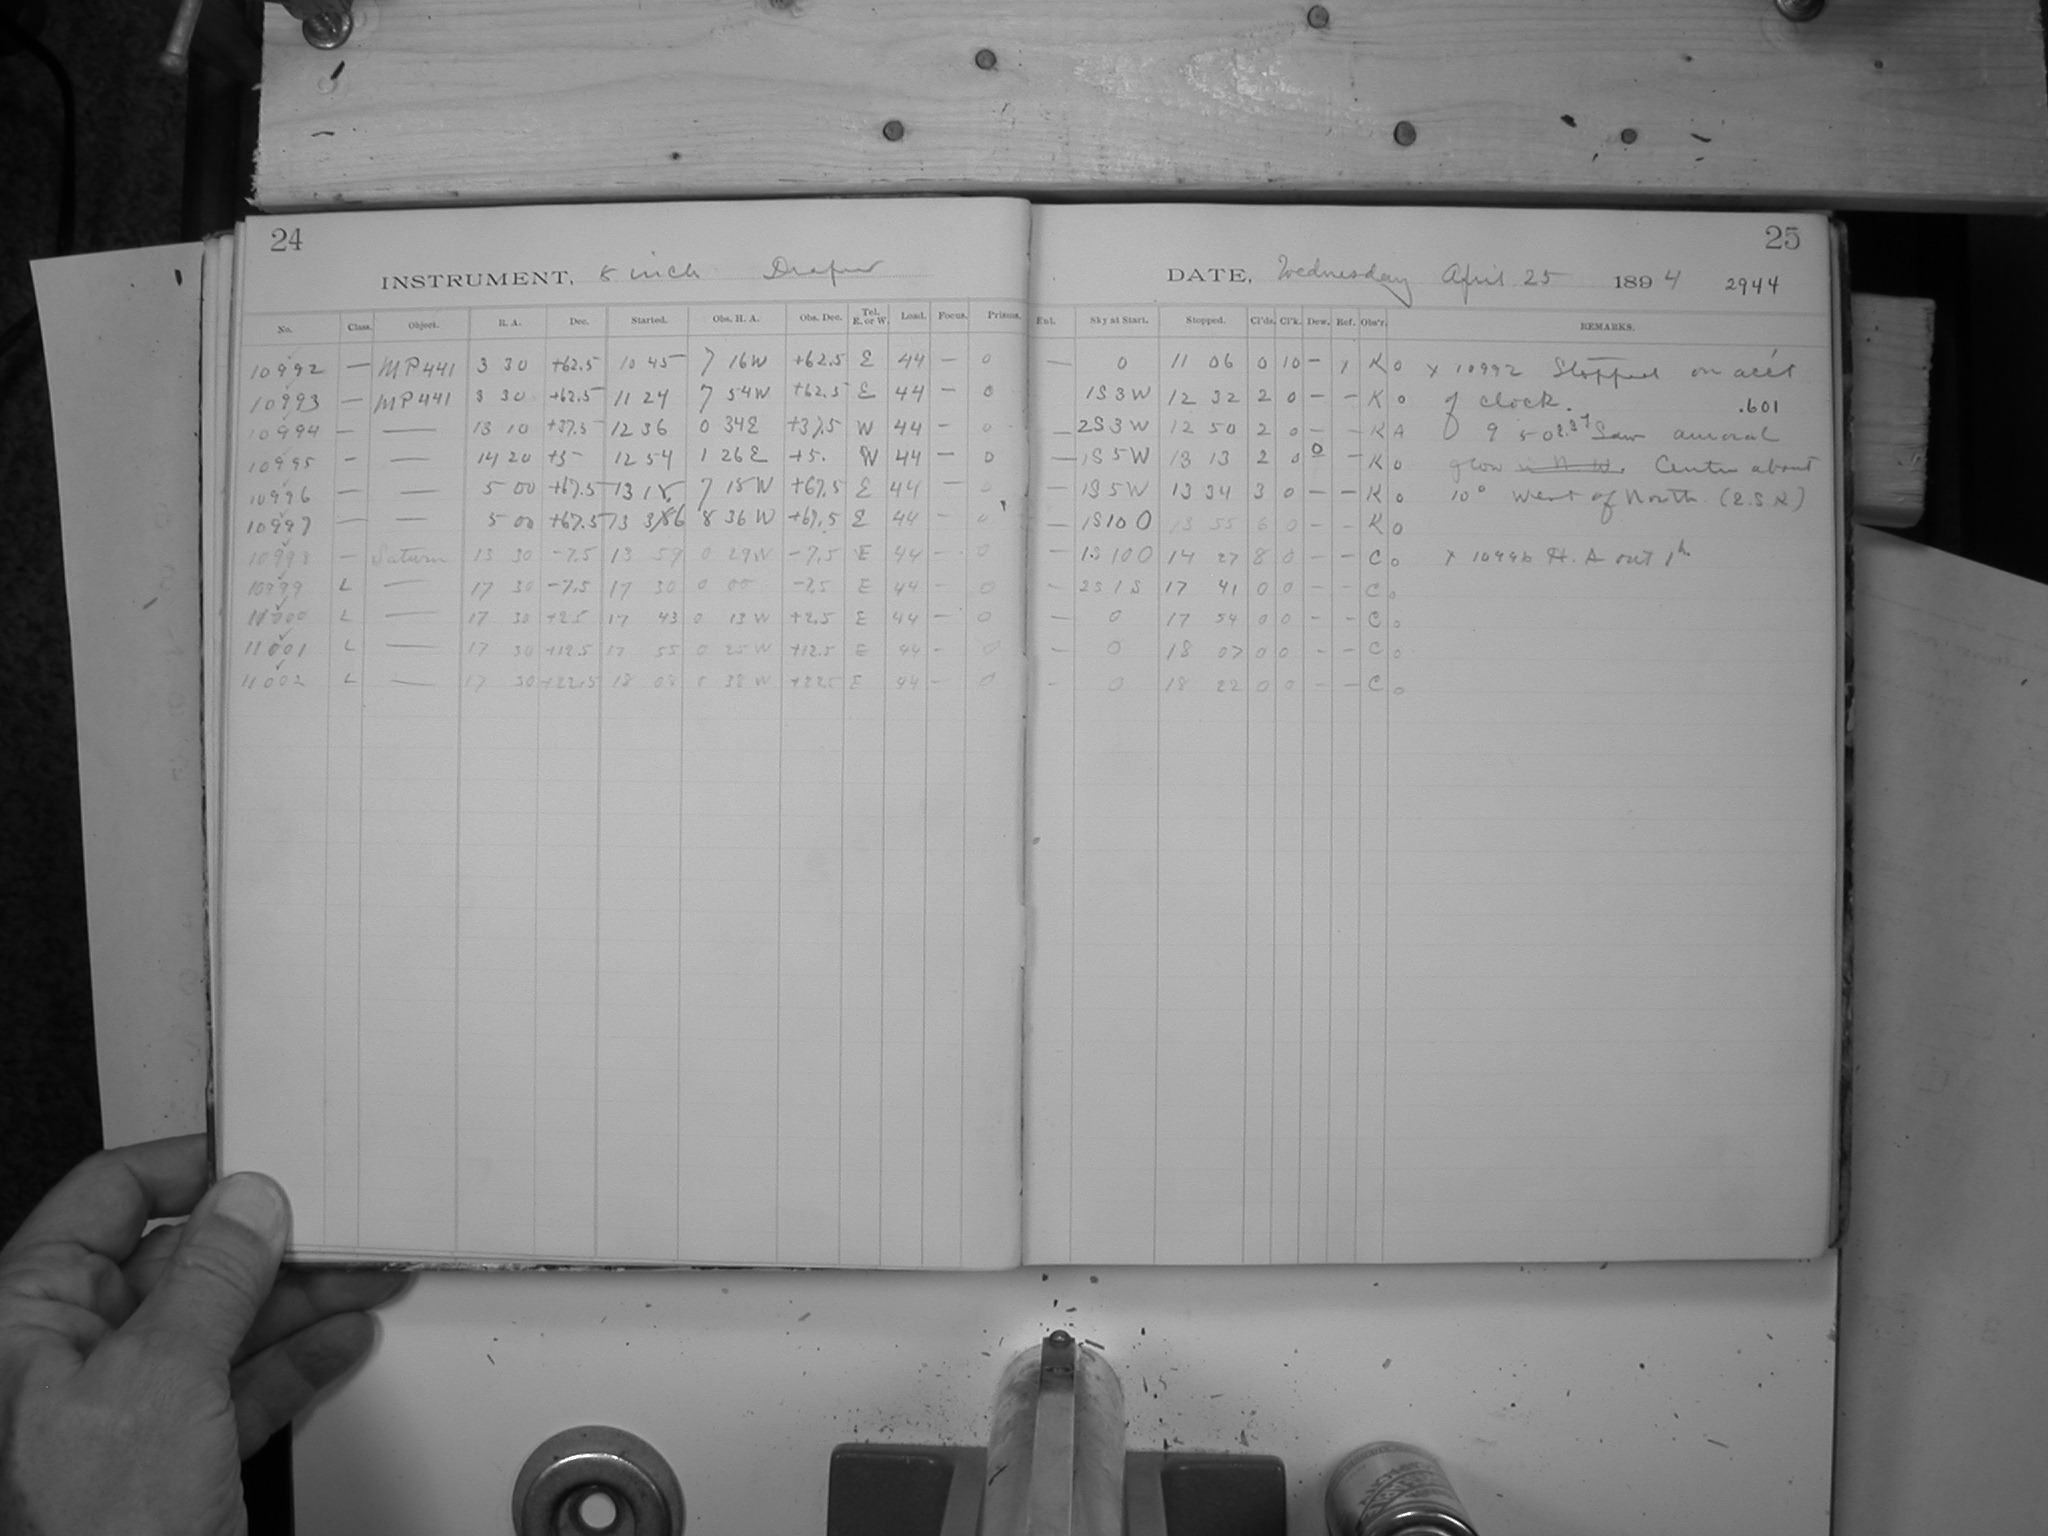 24
25
INSTRUMENT, 8 inch Draper
DATE, Wednesday April 25 1894 2944
No. Class. Object. R. A. Dec. Started. Obs. H. A. Obs. Dec. Tel. E. or W. Load. Focus. Prisms. Ent. Sky at Start. Stopped. Cl'ds. Cl'k. Dew. Ref. Obs'r. REMARKS.
10992 — MP441 3 30 +62.5 10 45 7 16W +62.5 E 44 — 0 — 0 11 06 0 10 — x K o x 10992 Stopped on acc't
10993 — MP441 3 30 +62.5 11 24 7 54W +62.5 E 44 — 0 1S3W 12 32 2 0 — — K o of clock. .601
10994 — — 13 10 +37.5 12 36 0 34E +37.5 W 44 — 0 — 2S3W 12 50 2 0 — — K A 9 50 Saw auroral
10995 — — 14 20 +5 12 54 1 26E +5. W 44 — 0 — 1S5W 13 13 2 0 0 — K o glow in N. W. Centre about
10996 — — 5 00 +67.5 13 18 7 18W +67.5 E 44 — 0 — 1S5W 13 34 3 0 — — K o 10° West of North. (E.S.K)
10997 — — 5 00 +67.5 13 36 8 36W +67.5 E 44 — 0 — 1S10O 13 55 6 0 — — K o
10998 — Saturn 13 30 -7.5 13 59 0 29W -7.5 E 44 — 0 — 1S10O 14 27 8 0 — — C o x 10996 H. A out 1h.
10999 L — 17 30 -7.5 17 30 0 00 -7.5 E 44 — 0 — 2S1S 17 41 0 0 — — C o
11000 L — 17 30 +2.5 17 43 0 13W +2.5 E 44 — 0 — 0 17 54 0 0 — — C o
11001 L — 17 30 +12.5 17 55 0 25W +12.5 E 44 — 0 — 0 18 07 0 0 — — C o
11002 L — 17 30 +22.5 18 08 0 38W +22.5 E 44 — 0 — 0 18 22 0 0 — — C o